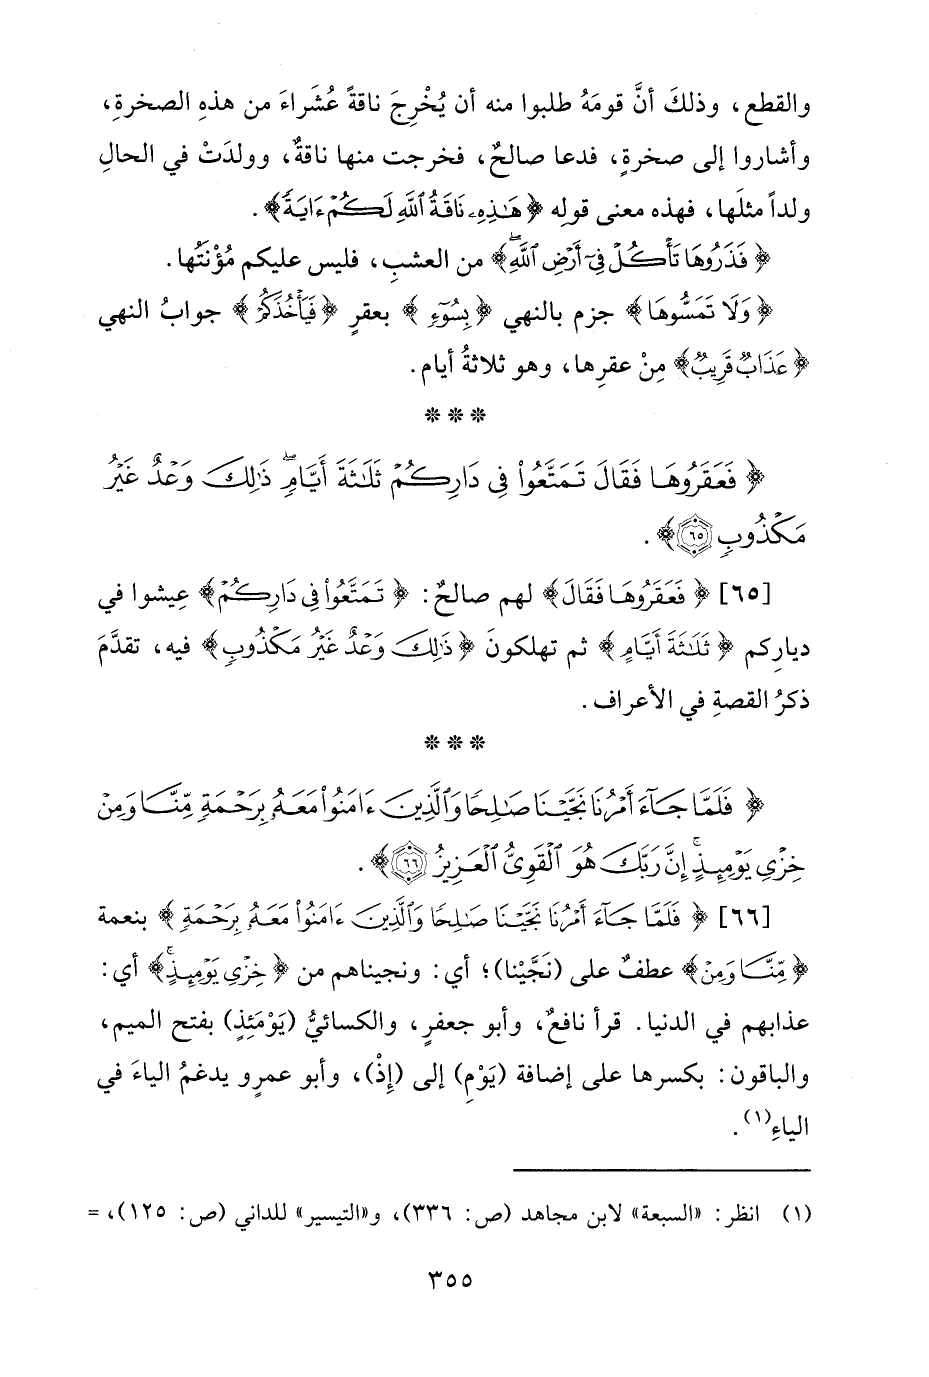 والقطع، وذلكَ أنَّ قومَهُ طلبوا منه أن يُخْرِجَ ناقةً عُشَراءَ من هذهِ الصخرةِ،
وأشاروا إلى صخرةٍ، فدعا صالحٌ، فخرجت منها ناقةٌ، وولدَتْ في الحالِ
ولداً مثلَها، فهذه معنى قولِه ﴿هَـٰذِهِۦ نَاقَةُ ٱللَّهِ لَكُمْ ءَايَةً﴾.
﴿فَذَرُوهَا تَأْكُلْ فِىٓ أَرْضِ ٱللَّهِۖ﴾ من العشبِ، فليس عليكم مُؤْنَتُها.
﴿وَلَا تَمَسُّوهَا﴾ جزم بالنهي ﴿بِسُوٓءٍ﴾ بعقرٍ ﴿فَيَأْخُذَكُمْ﴾ جوابُ النهي
﴿عَذَابٌ قَرِيبٌ﴾ مِنْ عقرِها، وهو ثلاثةُ أيام.
* * *
﴿فَعَقَرُوهَا فَقَالَ تَمَتَّعُوا۟ فِى دَارِكُمْ ثَلَـٰثَةَ أَيَّامٍۖ ذَٰلِكَ وَعْدٌ غَيْرُ
مَكْذُوبٍ ٦٥﴾.
[٦٥] ﴿فَعَقَرُوهَا فَقَالَ﴾ لهم صالحٌ: ﴿تَمَتَّعُوا۟ فِى دَارِكُمْ﴾ عِيشوا في
ديارِكم ﴿ثَلَـٰثَةَ أَيَّامٍ﴾ ثم تهلكونَ ﴿ذَٰلِكَ وَعْدٌ غَيْرُ مَكْذُوبٍ﴾ فيه، تقدَّمَ
ذكرُ القصةِ في الأعراف.
* * *
﴿فَلَمَّا جَآءَ أَمْرُنَا نَجَّيْنَا صَـٰلِحًا وَٱلَّذِينَ ءَامَنُوا۟ مَعَهُۥ بِرَحْمَةٍ مِّنَّا وَمِنْ
خِزْىِ يَوْمِئِذٍۚ إِنَّ رَبَّكَ هُوَ ٱلْقَوِىُّ ٱلْعَزِيزُ ٦٦﴾.
[٦٦] ﴿فَلَمَّا جَآءَ أَمْرُنَا نَجَّيْنَا صَـٰلِحًا وَٱلَّذِينَ ءَامَنُوا۟ مَعَهُۥ بِرَحْمَةٍ﴾ بنعمة
﴿مِّنَّا وَمِنْ﴾ عطفٌ على (نَجَّيْنا)؛ أي: ونجيناهم من ﴿خِزْىِ يَوْمِئِذٍۚ﴾ أي:
عذابهم في الدنيا. قرأ نافعٌ، وأبو جعفرٍ، والكسائيُّ (يَوْمَئِذٍ) بفتح الميم،
والباقون: بكسرها على إضافة (يَوْمِ) إلى (إِذْ)، وأبو عمرٍو يدغمُ الياءَ في
الياءِ(١).
(١) انظر: «السبعة» لابن مجاهد (ص: ٣٣٦)، و«التيسير» للداني (ص: ١٢٥)، =
٣٥٥